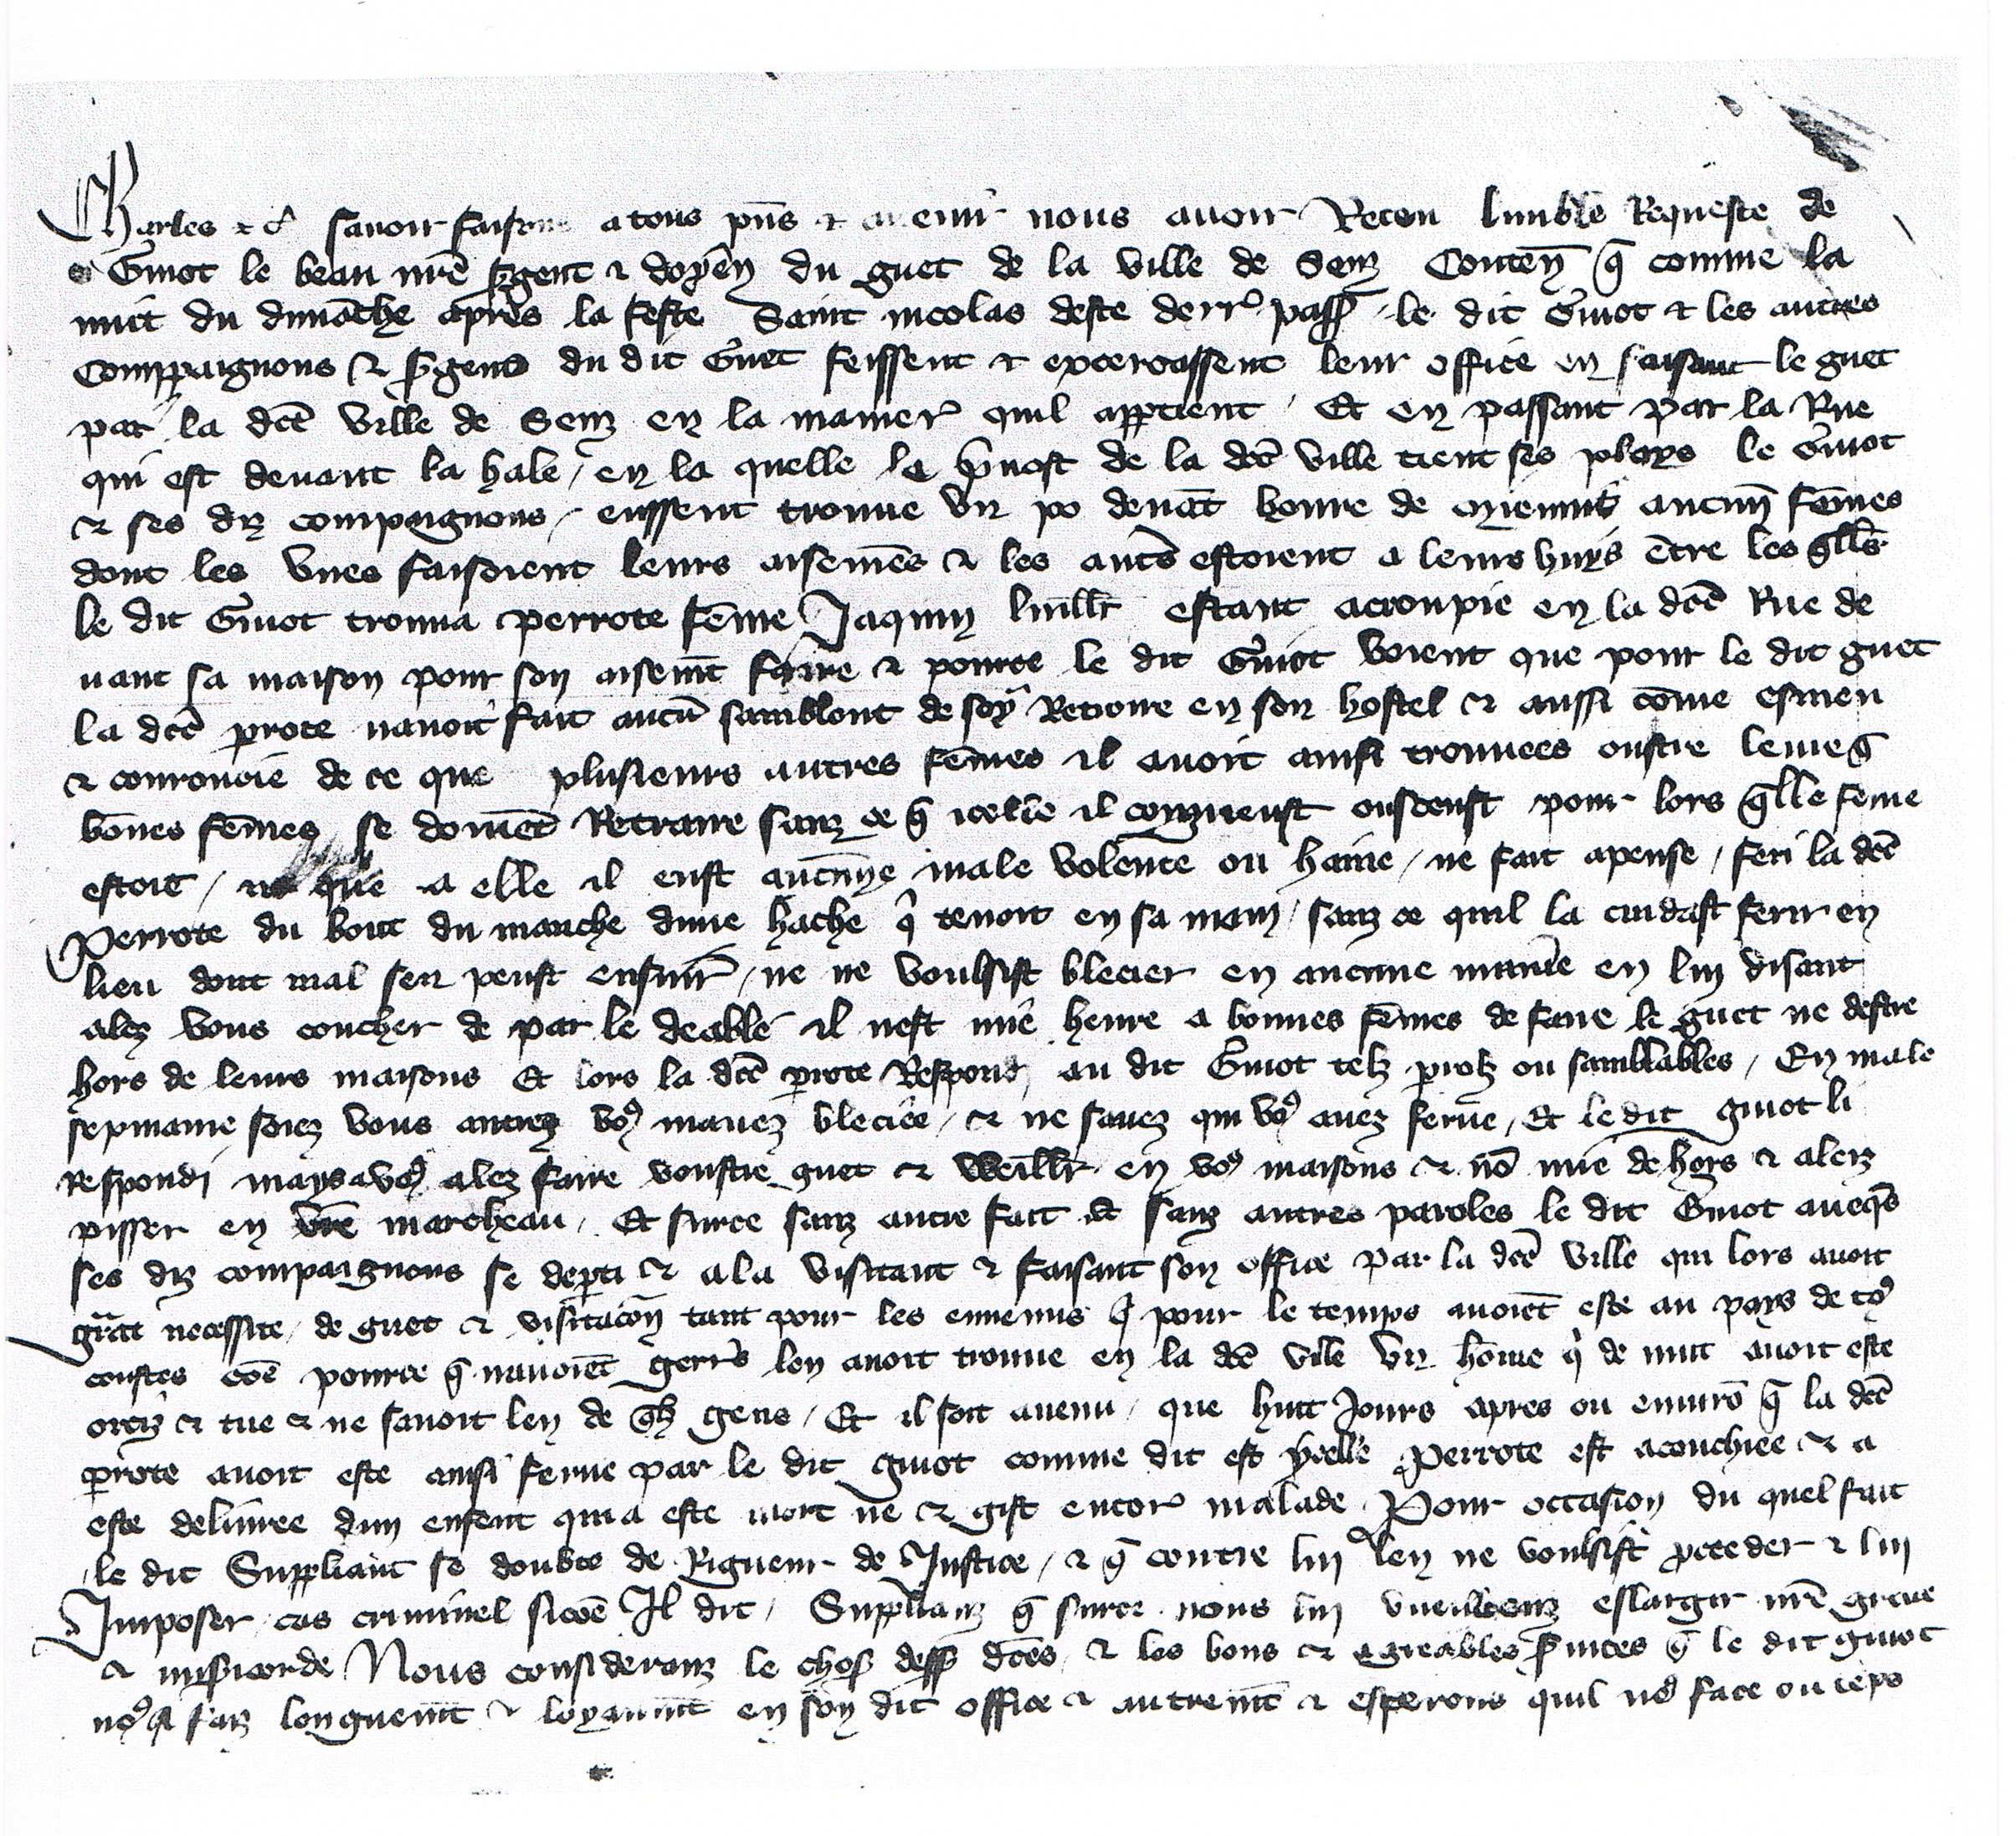 Charles etc. savoir faisons a tous pns et avenir nous avoir Receu lumble Requeste de
Guiot le beau nre sgent et doyen du guet de la ville de Senz Conten q comme la
nuit du dimache apres la feste Saint nicolas deste derr pass le dit Guiot et les autres
compaignons et sgens du dit Guet feissent et excercassent leur office en faisant le guet
par la dce ville de Senz en la manier quil apptient / Et en passant par la Rue
qui est devant la hale / en la quelle le pvost de la dce ville tient ses plays le Guiot
et ses diz compaignons / eussent trouve un po devat heure de mienuit aucun femes
dont les unes faisoient leurs aisemes et les auts estoient a leurs huys etre les qlles
le dit Guiot trouva perrote feme Jaquin estant acroupie en la dce Rue de
vant sa maison pour son aisemt faire et pource le dit Guiot voient que pour le dit guet
la dce prote navoit fait aucu samblont de soy Retraire en son hostel et aussi come esmeu
et couroucie de ce que plusieurs autres femes il avoit ainsi trouvees oustre leure q
bones femes se doivet Retraire sanz ce q icelle il congneust ou sceust pour lors qlle feme
estoit / ne que a elle il eust aucune male volente ou haine / ne fait apense / feri la dce
Perrote du bout du manche dune hache q tenoit en sa main / sanz ce quil la cuidast ferir en
lieu dont mal sen peust ensuir / ne ne voulsist blecier en aucune manie en luy disant
alez vous coucher de par le deable il nest mie heure a bonnes femes de faire le guet ne destre
hors de leurs maisons Et lors la dce prote Respondi au dit Guiot telz prolz ou samblables / En male
sepmaine soiez vous vos mavez bleciee / et ne savez qui vos avez ferue / Et le dit guiot li
Respondi mays a vos alez faire voustre guet et Weillr en vos maisons et no mie dehors et alez
pisser en vre marcheau / Et surce sanz autre fait et sanz autres paroles le dit Guiot aveqs
ses diz compaignons se depti et ala visitant et faisant son office par la dce ville qui lors avoit
grat necessite de guet et visitacon tant pour les ennemis q pour le temps avoiet este au pays de tos
coustes coe pource q navoiet gerrs len avoit trouve en la dce ville un home q de nuit avoit este
et tue et ne savoit len de qlz gens / Et il soit avenu / que huit Jours apres ou enviro q la dce
prote avoit este ainsi ferue par le dit guiot comme dit est ycelle Perrote est acouchiee et a
este delivree dun enfent qui a este mort ne et gist encor malade Pour occasion du quel fait
le dit Suppliant se doubte de Rigueur de Justice / et q contre lui len ne voulsist pceder et lui
Imposer cas criminel sicoe Il dit / Supplianz q surce nous lui vueillenz eslargir nre grace
et misicorde Nous considerans le chos dess dces et les bons et agreables svices q le dit guiot
nos a faiz longuemt et loyaumt en son dit office et autremt et esperons quil nos face ou teps